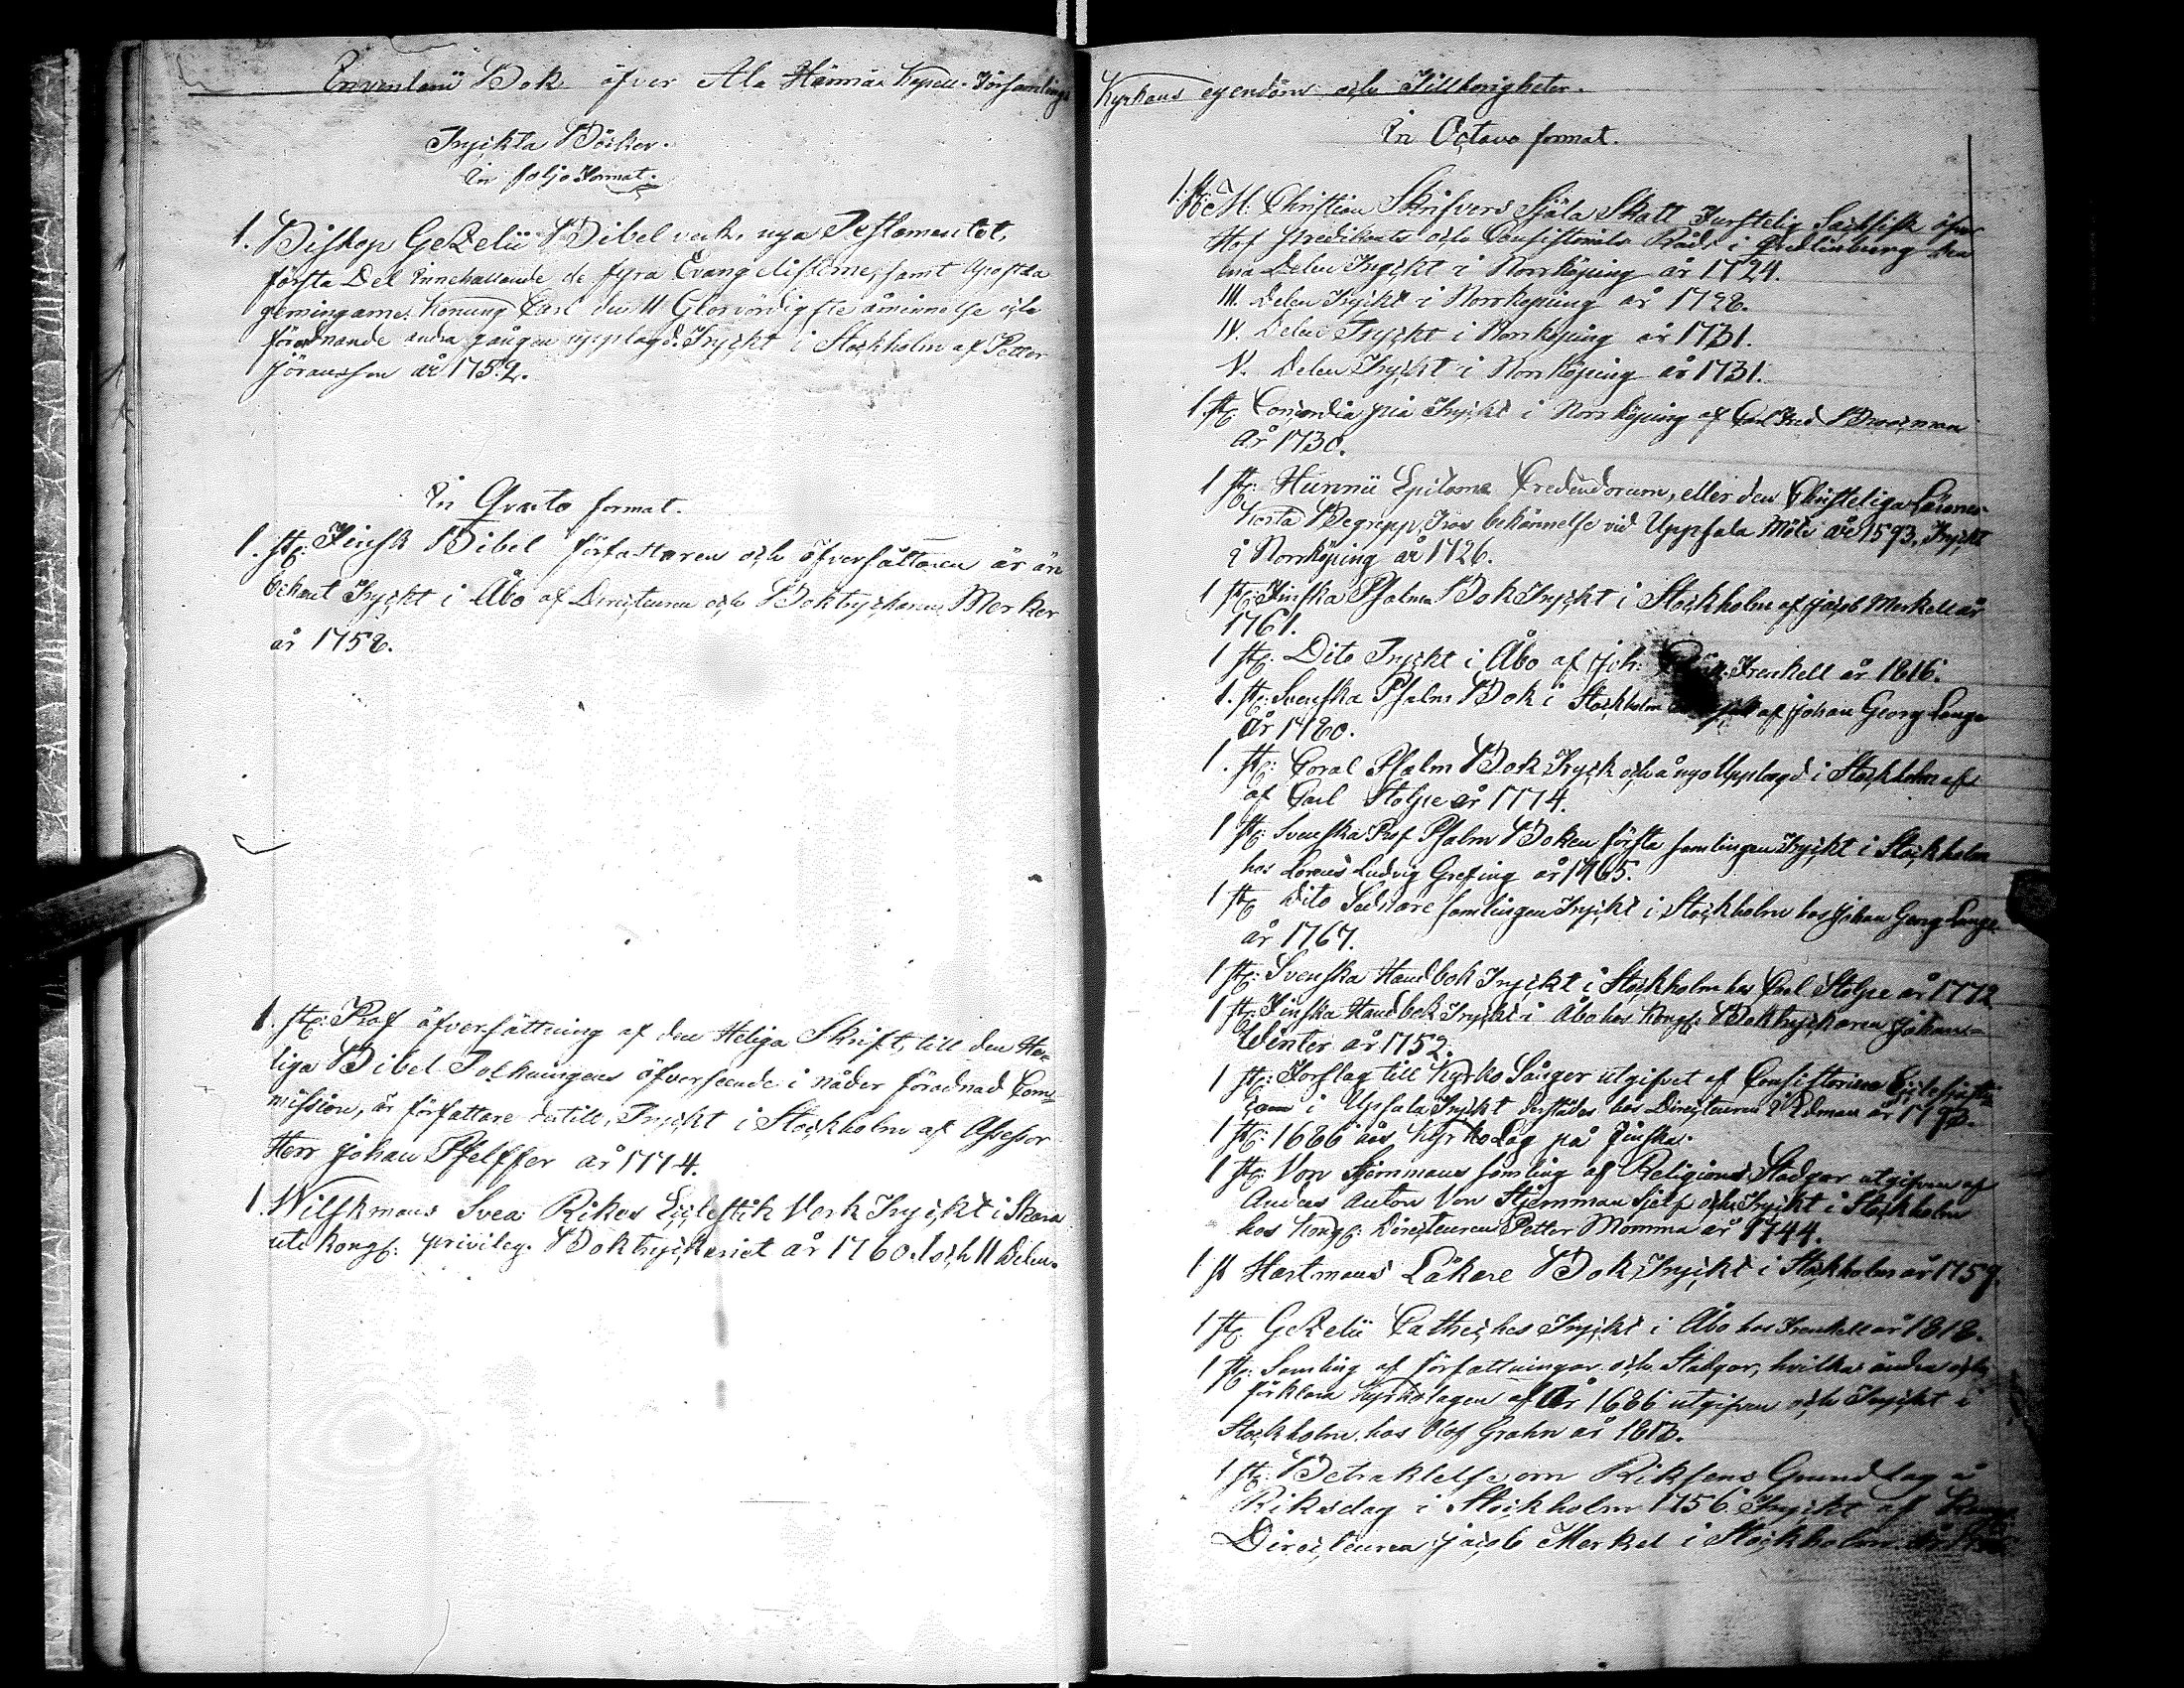 Inventarii Bok öfver Ala Härmä Kapell-Församlings
Tryckta Böcker.
In folio Format.
1. Biskop Gezelii Bibel verk, nya Testamentet,
första Del innehållande de fyra Evangelisterne, samt Apostla
gerningarne, Konung Carl den 11 Glorvördigste åminnelse och
förordnande andra gången upplagd. Tryckt i Stockholm af Petter
Jöransson år 1752.
In Qvarto format.
1. st: Finsk Bibel författaren och öfversättaren är än
bekant Tryckt i Åbo af Directeuren och Boktryckaren Merker
år 1758.
1. st: Prof öfversättning af den Heliga Skrift, till den He-
liga Bibel Tolkningens öfverseende i nåder förordnad Com-
mission, är författare dertill, Tryckt i Stockholm af Assessor
Herr Johan Pfeiffer år 1774.
1. Wilskmans Svea Rikes Ecclestik Verk Tryckt i Skara
uti Kongl: privileg. Boktryckeriet år 1760. I och II Delen.
Kyrkans egendom och Tillhörigheter.
In Octavo format.
1. st: M: Christian Skrifvers Själa Skatt Furstelig Sachsisk öfver
Hof predikants och Consistorials Råds i Quedlinburg den
ena Delen Tryckt i Norrköping år 1724.
III. Delen Tryckt i Norrköping år 1728.
IV. Delen Tryckt i Norrköping år 1731.
V. Delen Tryckt i Norrköping år 1731.
1. st: Concordia pia Tryckt i Norrköping af Carl Fred Broocman
år 1730.
1 st: Hunnii Epitome Credendorum, eller den Christeliga Lärones
Korta Begrepp, Tros bekännelse vid Uppsala Möte år 1593, Tryckt
i Norrköping år 1726.
1 st: Finska Psalm Bok Tryckt i Stockholm af Jacob Merkell år
1761.
1 st: Dito Tryckt i Åbo af Joh: Frenkell år 1816.
1. st: Svenska Psalm Bok i Stockholm af Johan Georg Lange
år 1780.
1. st: Coral Psalm Bok Tryck och å nyo Upplagd i Stockholm af
af Carl Stolpe år 1774.
1 st: Svenska Prof Psalm Boken första samlingen Tryckt i Stockholm
hos Lorens Ludvig Grefing år 1765.
1 st: Dito Sednare samlingen Tryckt i Stockholm hos Johan Georg Lange
år 1767.
1 st: Svenska Handbok Tryckt i Stockholm hos Carl Stolpe år 1772
1 st: Finska Handbok Tryckt i Åbo hos Kongl: Boktryckaren Johan
Winter år 1752.
1 st: Förslag till Kyrko Sånger utgifvet af Consistorium Ecclesiasti-
cum i Upsala Tryckt derstädes hos Directeuren Edman år 1793.
1 st: 1686 års Kyrko Lag på finska.
1 st: Von Stjernmans samling af Religions Stadgar utgifven af
Anders Anton Von Stjernman Sjelf och Tryckt i Stockholm
hos Kongl: Directeuren Petter Momma år 1744.
1 st Hartmans Läkare Bok Tryckt i Stockholm år 1759.
1 st: Gezelii Catheches Tryckt i Åbo hos Frenkell år 1818.
1 st: Samling af författningar och Stadgar, hvilka ändra och
förklara Kyrkolagen af År 1686 utgifven och Tryckt i
Stockholm hos Olof Grahn år 1813.
1 st: Betraktelse om Riksens Grund Lag å
Riksdag i Stockholm 1756 Tryckt af Kongl
Directeuren Jacob Merkel i Stockholm